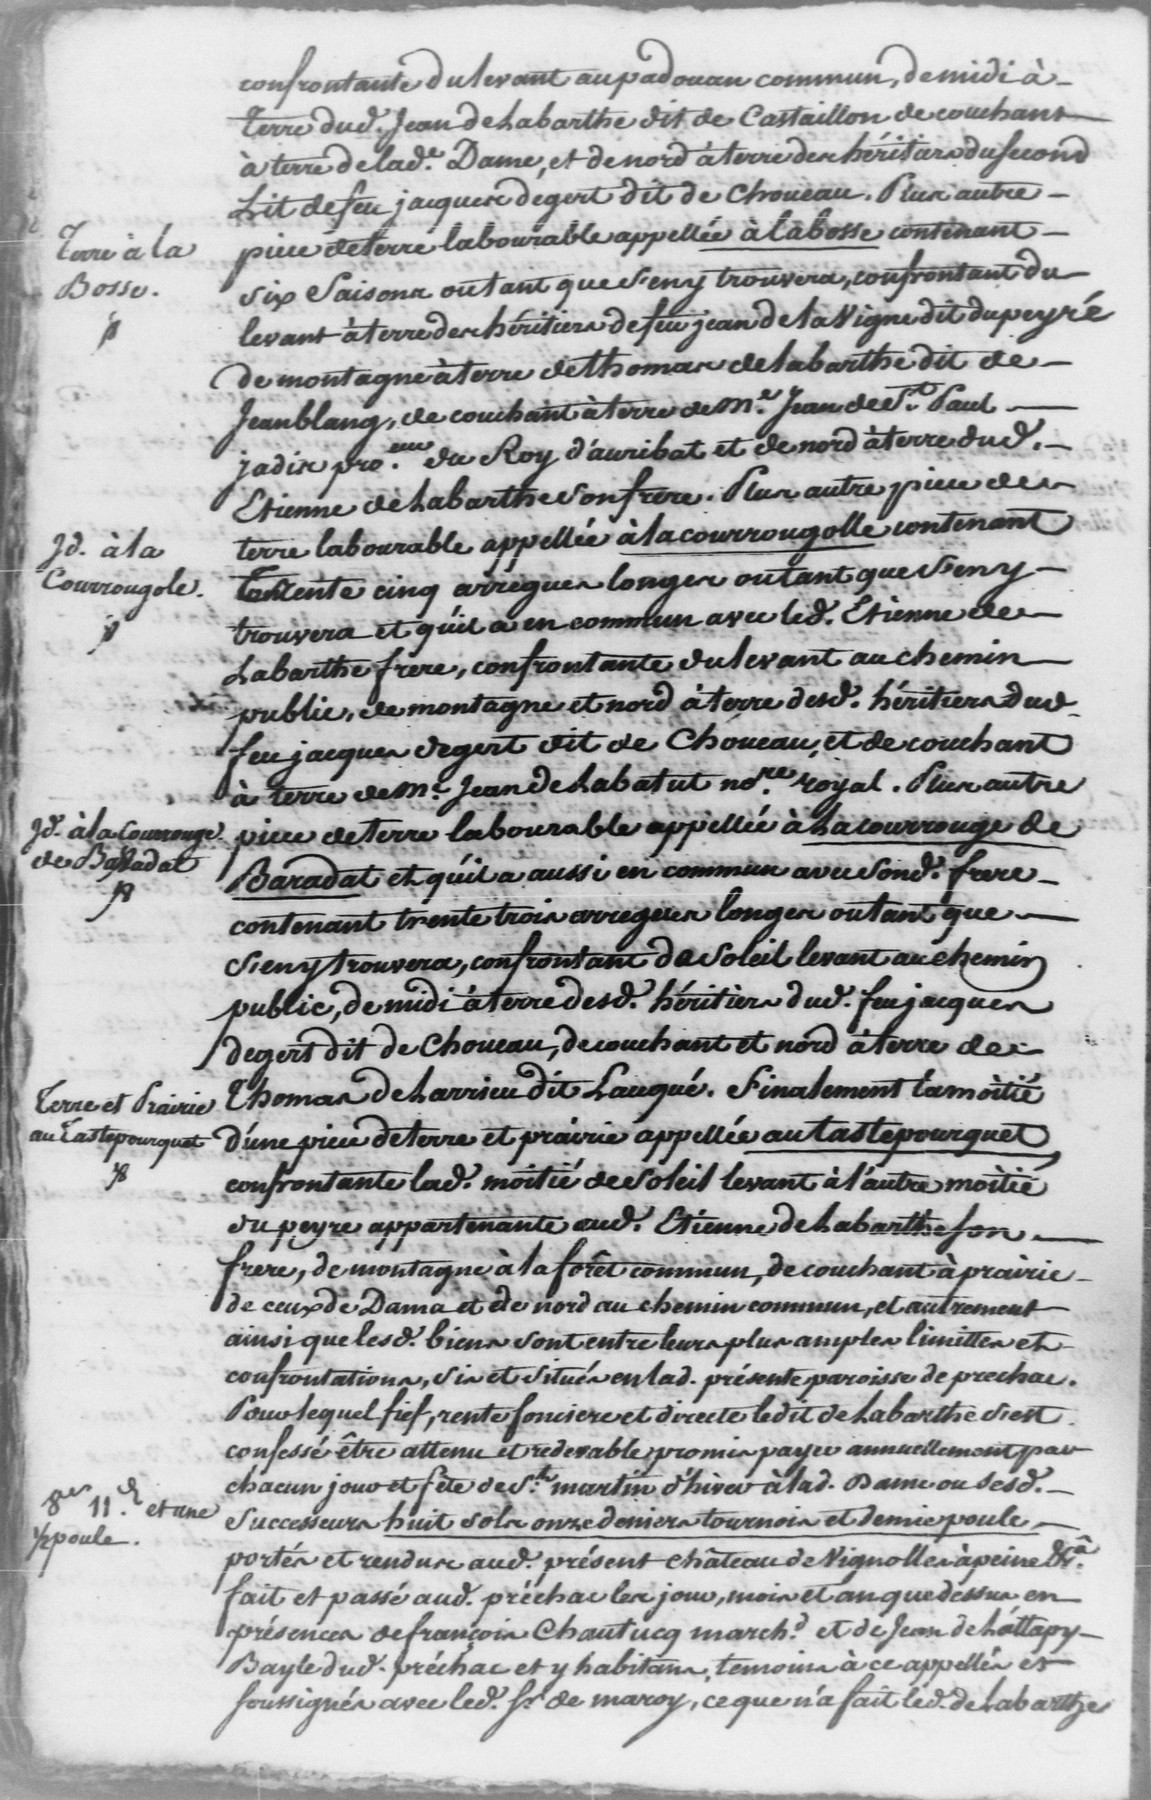 confrontante du levant au padouan commun, de midi à
Terre dud. Jean de Labarthe dit de Castaillon de couchant
à terre de lad.e Dame, et de nord à terre des héritiers du second
Lit de feu jacques degert dit de Choueau. Plus autre
Terre à la
Bosse.
piece de terre labourable appellée à la bosse contenant
six Saisons ou tant que s'en y trouvera, confrontant du
levant à terre des héritiers de feu jean de la Vigne dit du peyré
de montagne à terre de thomas de labarthe dit de
Jeanblang, de couchant à terre de m.e Jean de S.t Paul
jadis pro.eur du Roy d'auribat et de nord à terre dud.
Etienne de Labarthe son frere. Plus autre piece de
Id. à la
Courrougole.
terre labourable appellée à la courrougolle contenant
Trente cinq arregues longes ou tant que s'en y
trouvera et qu'il a en commun avec led. Etienne de
Labarthe frere, confrontante du levant au chemin
public, de montagne et nord à terre desd. héritiers dud.
feu jacques degert dit de Choueau, et de couchant
à terre de m.e Jean de Labatut no.re royal. Plus autre
Id. à la Courrouge
de Baradat
piece de terre labourable appellée à La courrouge de
Baradat et qu'il a aussi en commun avec sond. frere
contenant trente trois arregues longes ou tant que
s'en y trouvera, confrontant de soleil levant au chemin
public, de midi à terre desd. héritiers dud. feu jacques
degert dit de Choueau, de couchant et nord à terre de
Terre et Prairie
au Tastepourquet
Thomas de Larrieu dit Lauqué. Finalement la moitié
d'une piece de terre et prairie appellée au tastepourquet
confrontante lad. moitié de soleil levant à l'autre moitié
du peyre appartenante aud. Etienne de Labarthe son
frere, de montagne à la forêt commun, de couchant à prairie
de ceux de Dama et de nord au chemin commun, et autrement
ainsi que lesd. biens sont entre leurs plus amples limittes et
confrontations, sis et situés en lad. présente paroisse de prechac.
Pour lequel fief, rente fonciere et directe ledit de Labarthe s'est
confessé être attenu et redevable promis payer annuellement par
chacun jour et fête de S.t martin d'hiver à lad. Dame ou sesd.
8s 11.d et une
1/2 poule.
successeurs huit sols onze deniers tournois et demie poule
portés et rendus aud. présent château de Vignolles à peine &.a
fait et passé aud. préchac les jour, mois et an que dessus en
présences de françois Chautucq march.d et de Jean de Lattapy
Bayle dud. préchac et y habitans, temoins à ce appellés et
soussignés avec led. S.r de maroy, ce que n'a fait led. de Labarthe